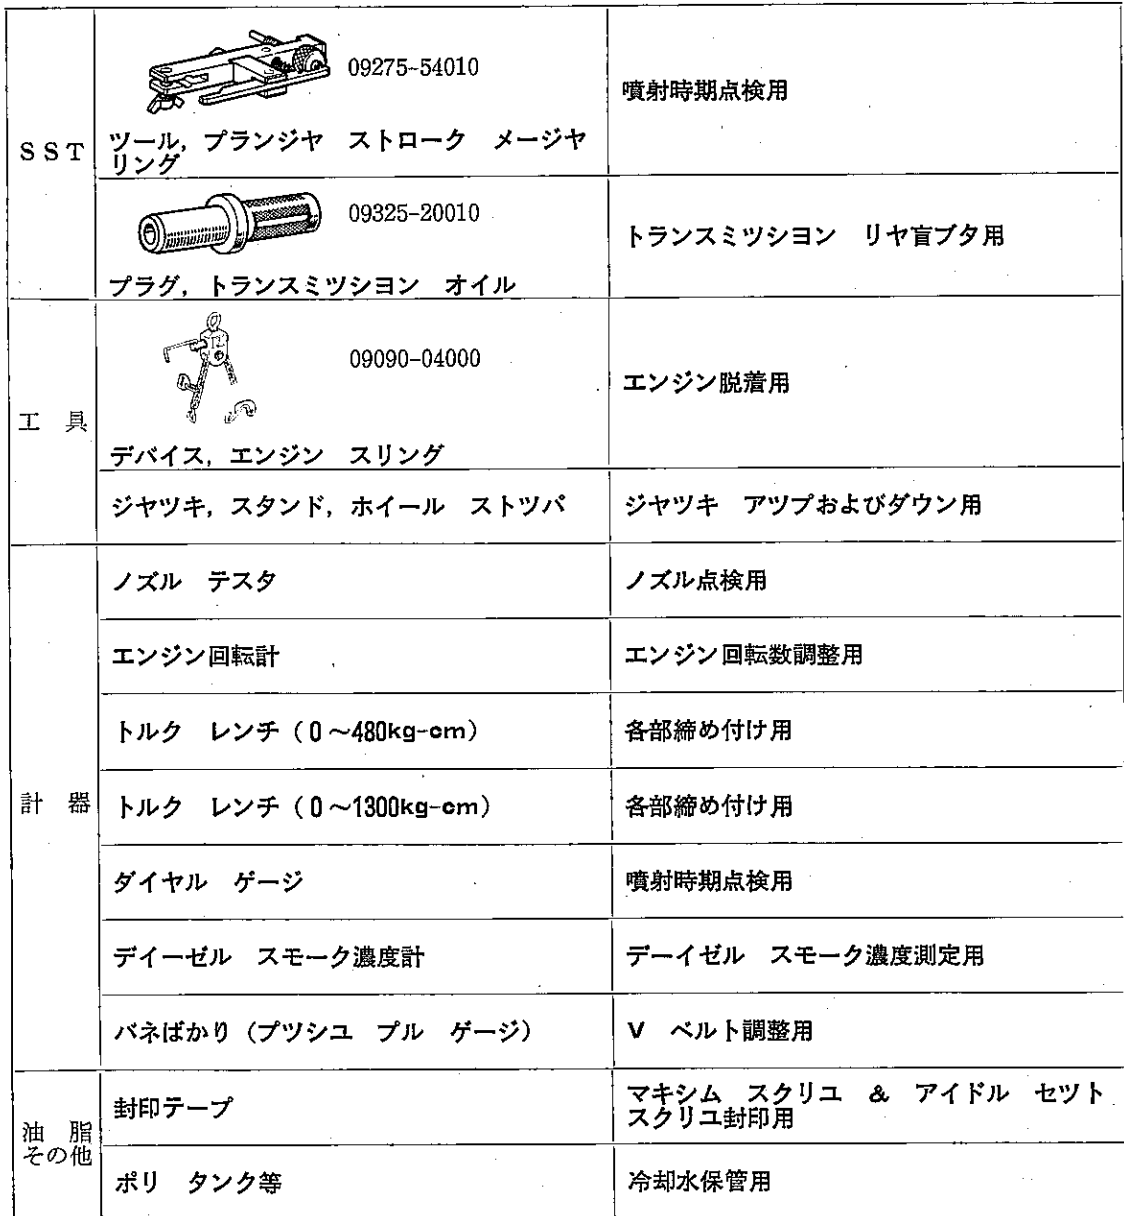 SST
09275-54010
ツール，プランジヤ　ストローク　メージヤ
リング
噴射時期点検用
09325-20010
プラグ，トランスミツシヨン　オイル
トランスミツシヨン　リヤ盲ブタ用
工　具
09090-04000
デバイス，エンジン　スリング
エンジン脱着用
ジヤツキ，スタンド，ホイール　ストツパ
ジヤツキ　アツプおよびダウン用
計　器
ノズル　テスタ
ノズル点検用
エンジン回転計
エンジン回転数調整用
トルク　レンチ（0～480kg-cm）
各部締め付け用
トルク　レンチ（0～1300kg-cm）
各部締め付け用
ダイヤル　ゲージ
噴射時期点検用
デイーゼル　スモーク濃度計
デーイゼル　スモーク濃度測定用
バネばかり（プツシユ　プル　ゲージ）
V　ベルト調整用
油　脂
その他
封印テープ
マキシム　スクリユ　&　アイドル　セツト
スクリユ封印用
ポリ　タンク等
冷却水保管用